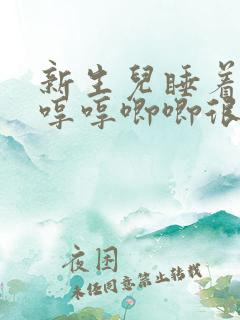 新生兒睡着
哼哼唧唧很
夜困
未经同意禁止转载